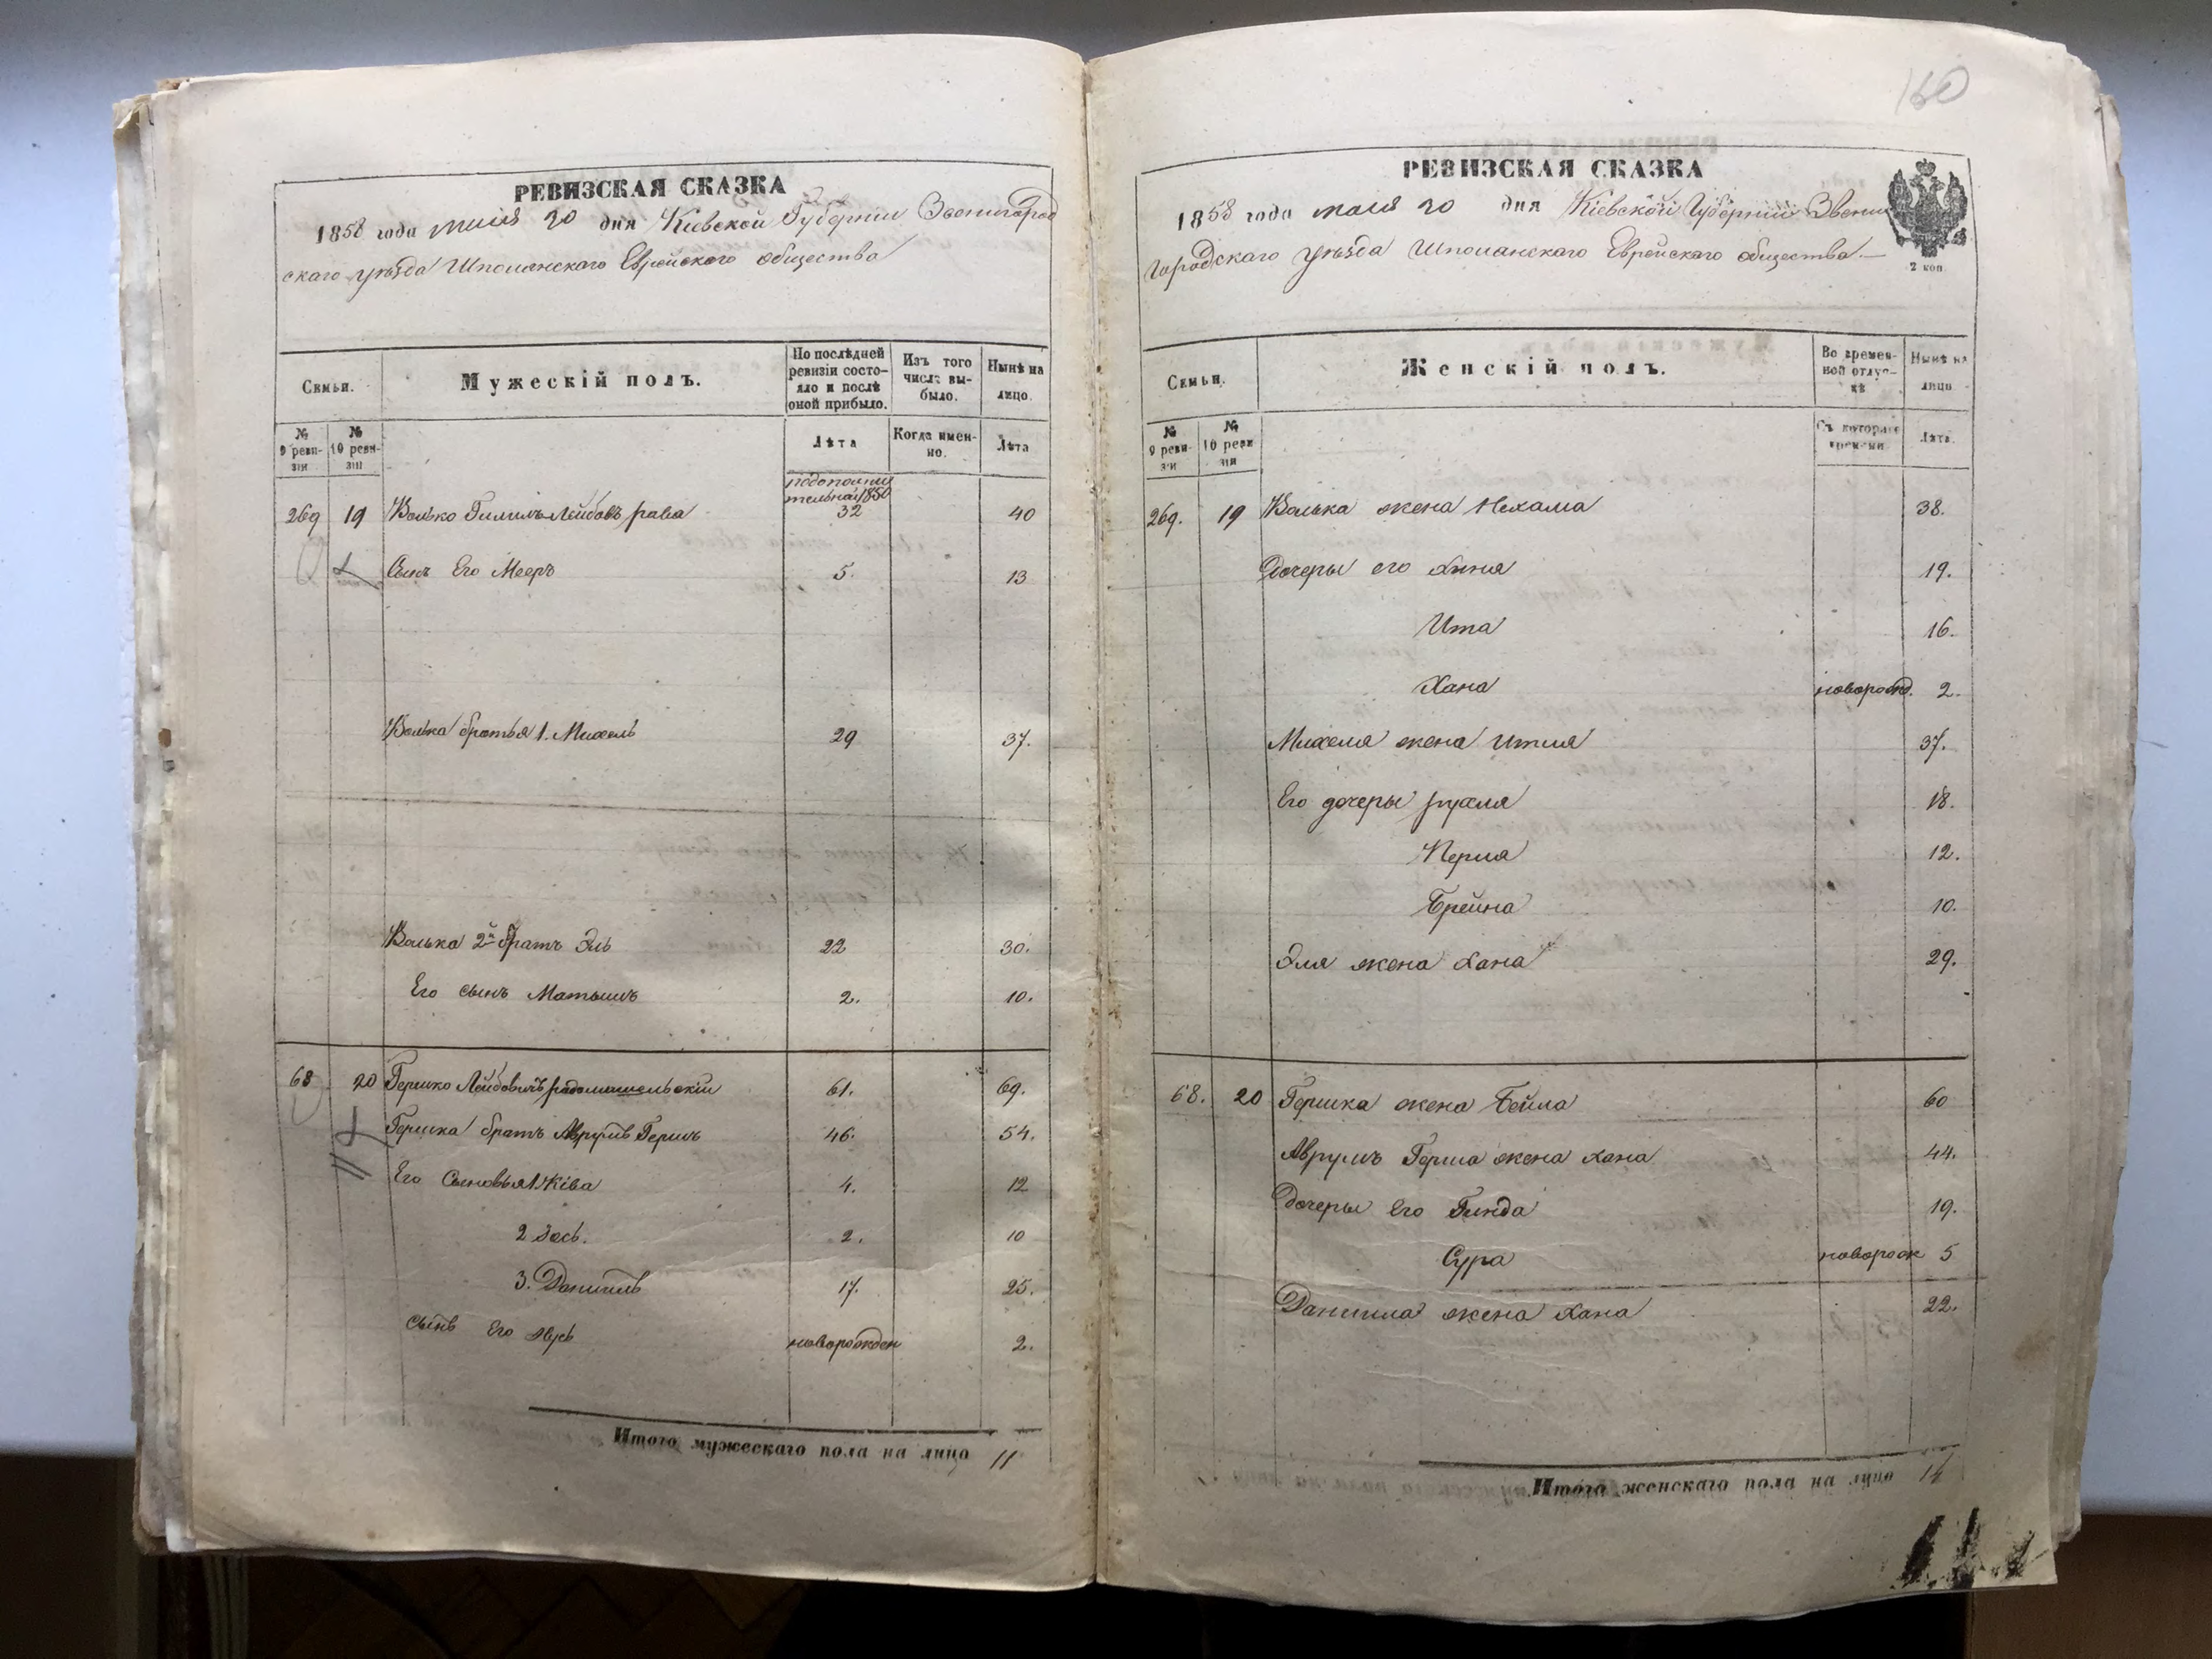 РЕВИЗСКАЯ СКАЗКА
1858 года мая 20 дня Кіевской Губерніи Звенигород
скаго уѣзда Шполянскаго Еврейскаго общества
Семьи.
Мужескій полъ.
По послѣдней ревизіи состояло и послѣ оной прибыло.
Изъ того числа выбыло.
Нынѣ на лицо.
№ 9 ревизіи
№ 10 ревизіи
Лѣта
Когда именно.
Лѣта
1850
269 19 Волько Лейбовъ 32 40
Сынъ Его Мееръ 5. 13
Волька братья 1. Михель 29 37.
Волька 2й братъ Эль 22 30.
Его сынъ Матышъ 2. 10.
68 20 Гершко Лейбовичъ радомышельскій 61. 69.
Гершка братъ Аврумъ Гершъ 46. 54.
Его Сыновья 1. Ківа 4. 12
2 Іось. 2. 10
3. Данилъ 17. 25.
Сынъ Его новорожден 2.
Итого мужескаго пола на лицо 11
160
РЕВИЗСКАЯ СКАЗКА
1858 года мая 20 дня Кіевской Губерніи Звени
городскаго уѣзда Шполянскаго Еврейскаго общества.
2 коп
Семьи.
Женскій полъ.
Во временной отлучкѣ
Нынѣ на лицо
№ 9 ревизіи
№ 10 ревизіи
Съ котораго времени
Лѣта.
269. 19 Волька жена Нехама 38.
Дочеры его 19.
Ита 16.
Хана новорожд. 2.
Михеля жена Итля 37.
Его дочеры рухля 18.
Перля 12.
Брейна 10.
Эля жена Хана 29.
68. 20 Гершка жена Бейла 60
Аврумъ Герша жена Хана 44.
Дочеры Его Гинда 19.
Сура новорож 5
Данила жена Хана 22.
Итого женскаго пола на лицо 14